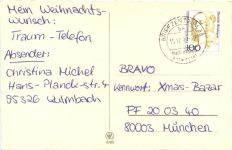 Mein Weihnachts-
wunsch:
Traum-Telefon
Absender:
Christina Michel
Hans-Planck-str.4
95326 Kulmbach
100
BRAVO
Kennwort: Xmas-Bazar
PF 20 03 40
80003 München